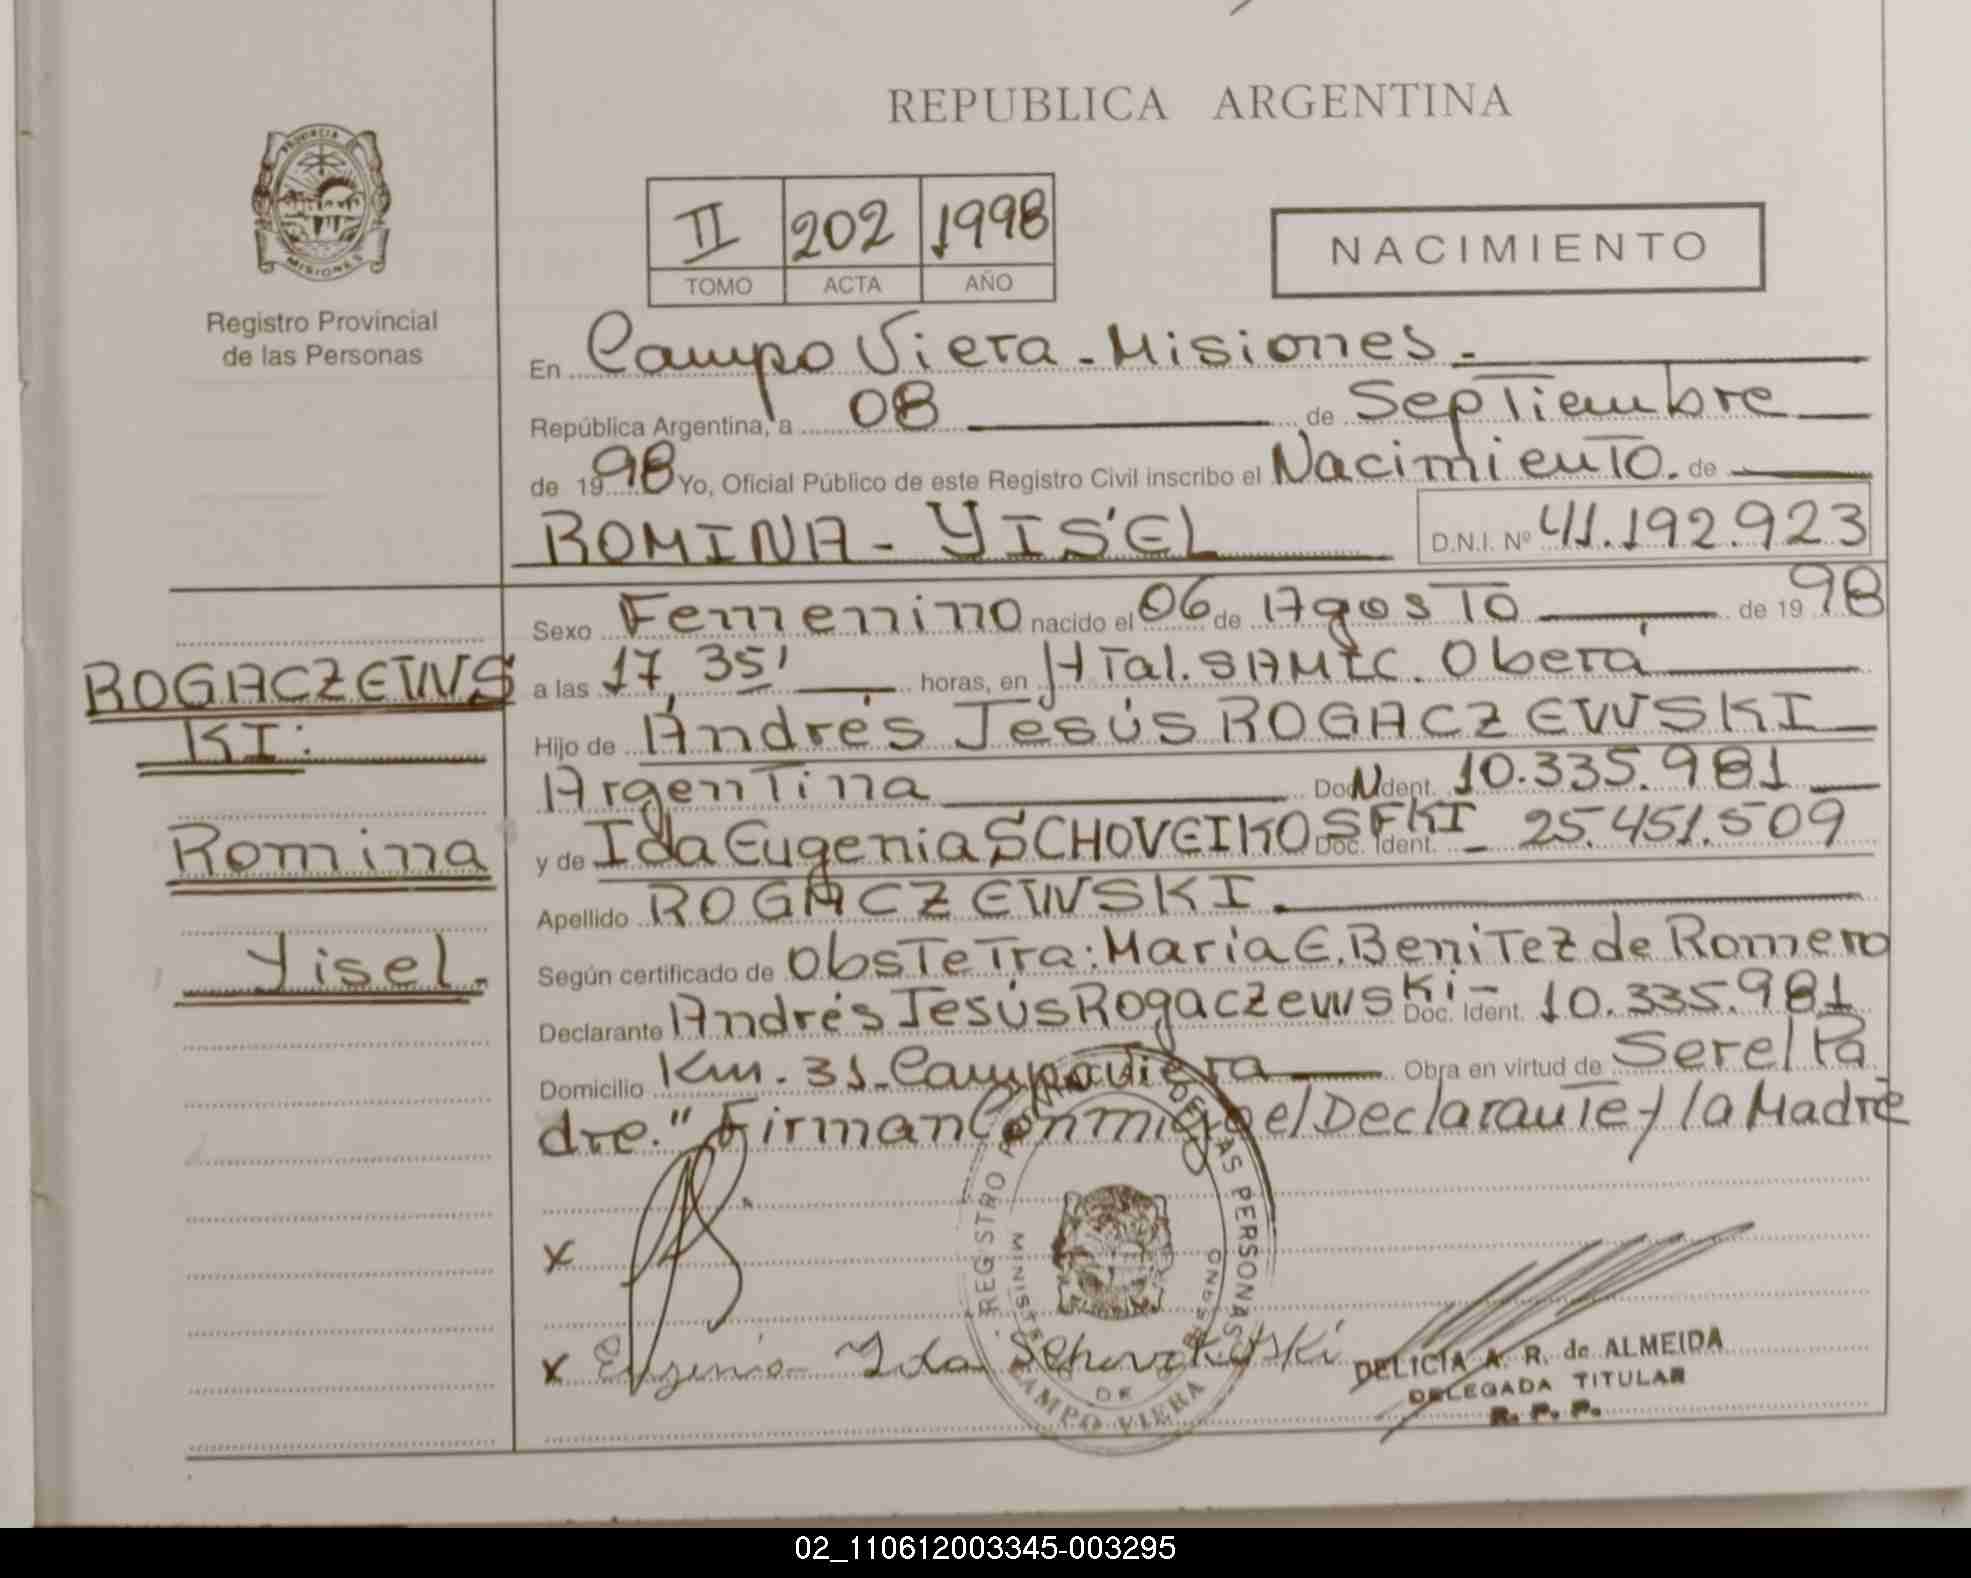 REPUBLICA ARGENTINA
PROVINCIA DE
MISIONES
Registro Provincial
de las Personas
II 202 1998
TOMO ACTA AÑO
NACIMIENTO
En Campo Viera - Misiones.-
República Argentina, a 08 de Septiembre
de 1998 Yo, Oficial Público de este Registro Civil inscribo el Nacimiento. de
ROMINA - YISEL D.N.I. Nº 41.192.923
Sexo Femenino nacido el 06 de Agosto de 19 98
ROGACZEWS
KI:
Romina
Yisel.
a las 17,35' horas, en HTal. SAMIC. Oberá
Hijo de Andrés Jesús ROGACZEWSKI
Argentina Doc. Ident. 10.335.981
y de Ida Eugenia SCHOVEIKOSFKI Doc. Ident. - 25.451.509
Apellido ROGACZEWSKI.
Según certificado de ObsTeTra: María E. BeniTez de Romero
Declarante Andrés Jesús Rogaczewski - Doc. Ident. 10.335.981
Domicilio Km. 31 - Campo Viera Obra en virtud de Ser el Pa
dre." Firman Conmigo el Declarante y la Madre
x
x Eugenia Ida
REGISTRO DE LAS PERSONAS
DE
CAMPO VIERA
DELICIA A. R. de ALMEIDA
DELEGADA TITULAR
R. P. P.
02_110612003345-003295